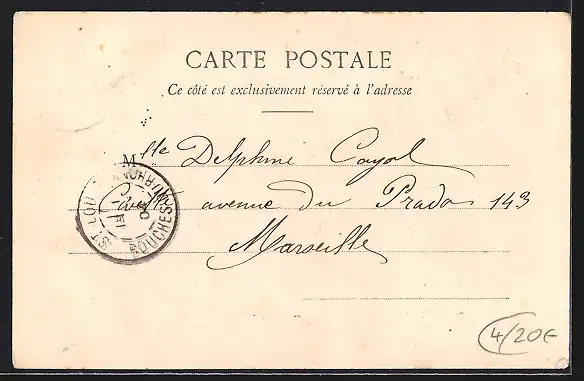 CARTE POSTALE
Ce côté est exclusivement réservé à l'adresse
Mlle Delphine Cayol
avenue du Prado 143
Marseille
BOUCHES-DU-RHONE
4/20€